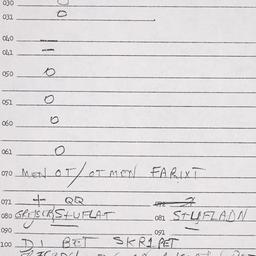 030 O
031 O
040 —
041 —
050 O
051 O
060 O
061 O
070 MEN OT/OTMEN FARIXT
071 + QQ
080 StUFLAT 081 StUFLADN
091 —
090 —
100 DI BET SKRIPET